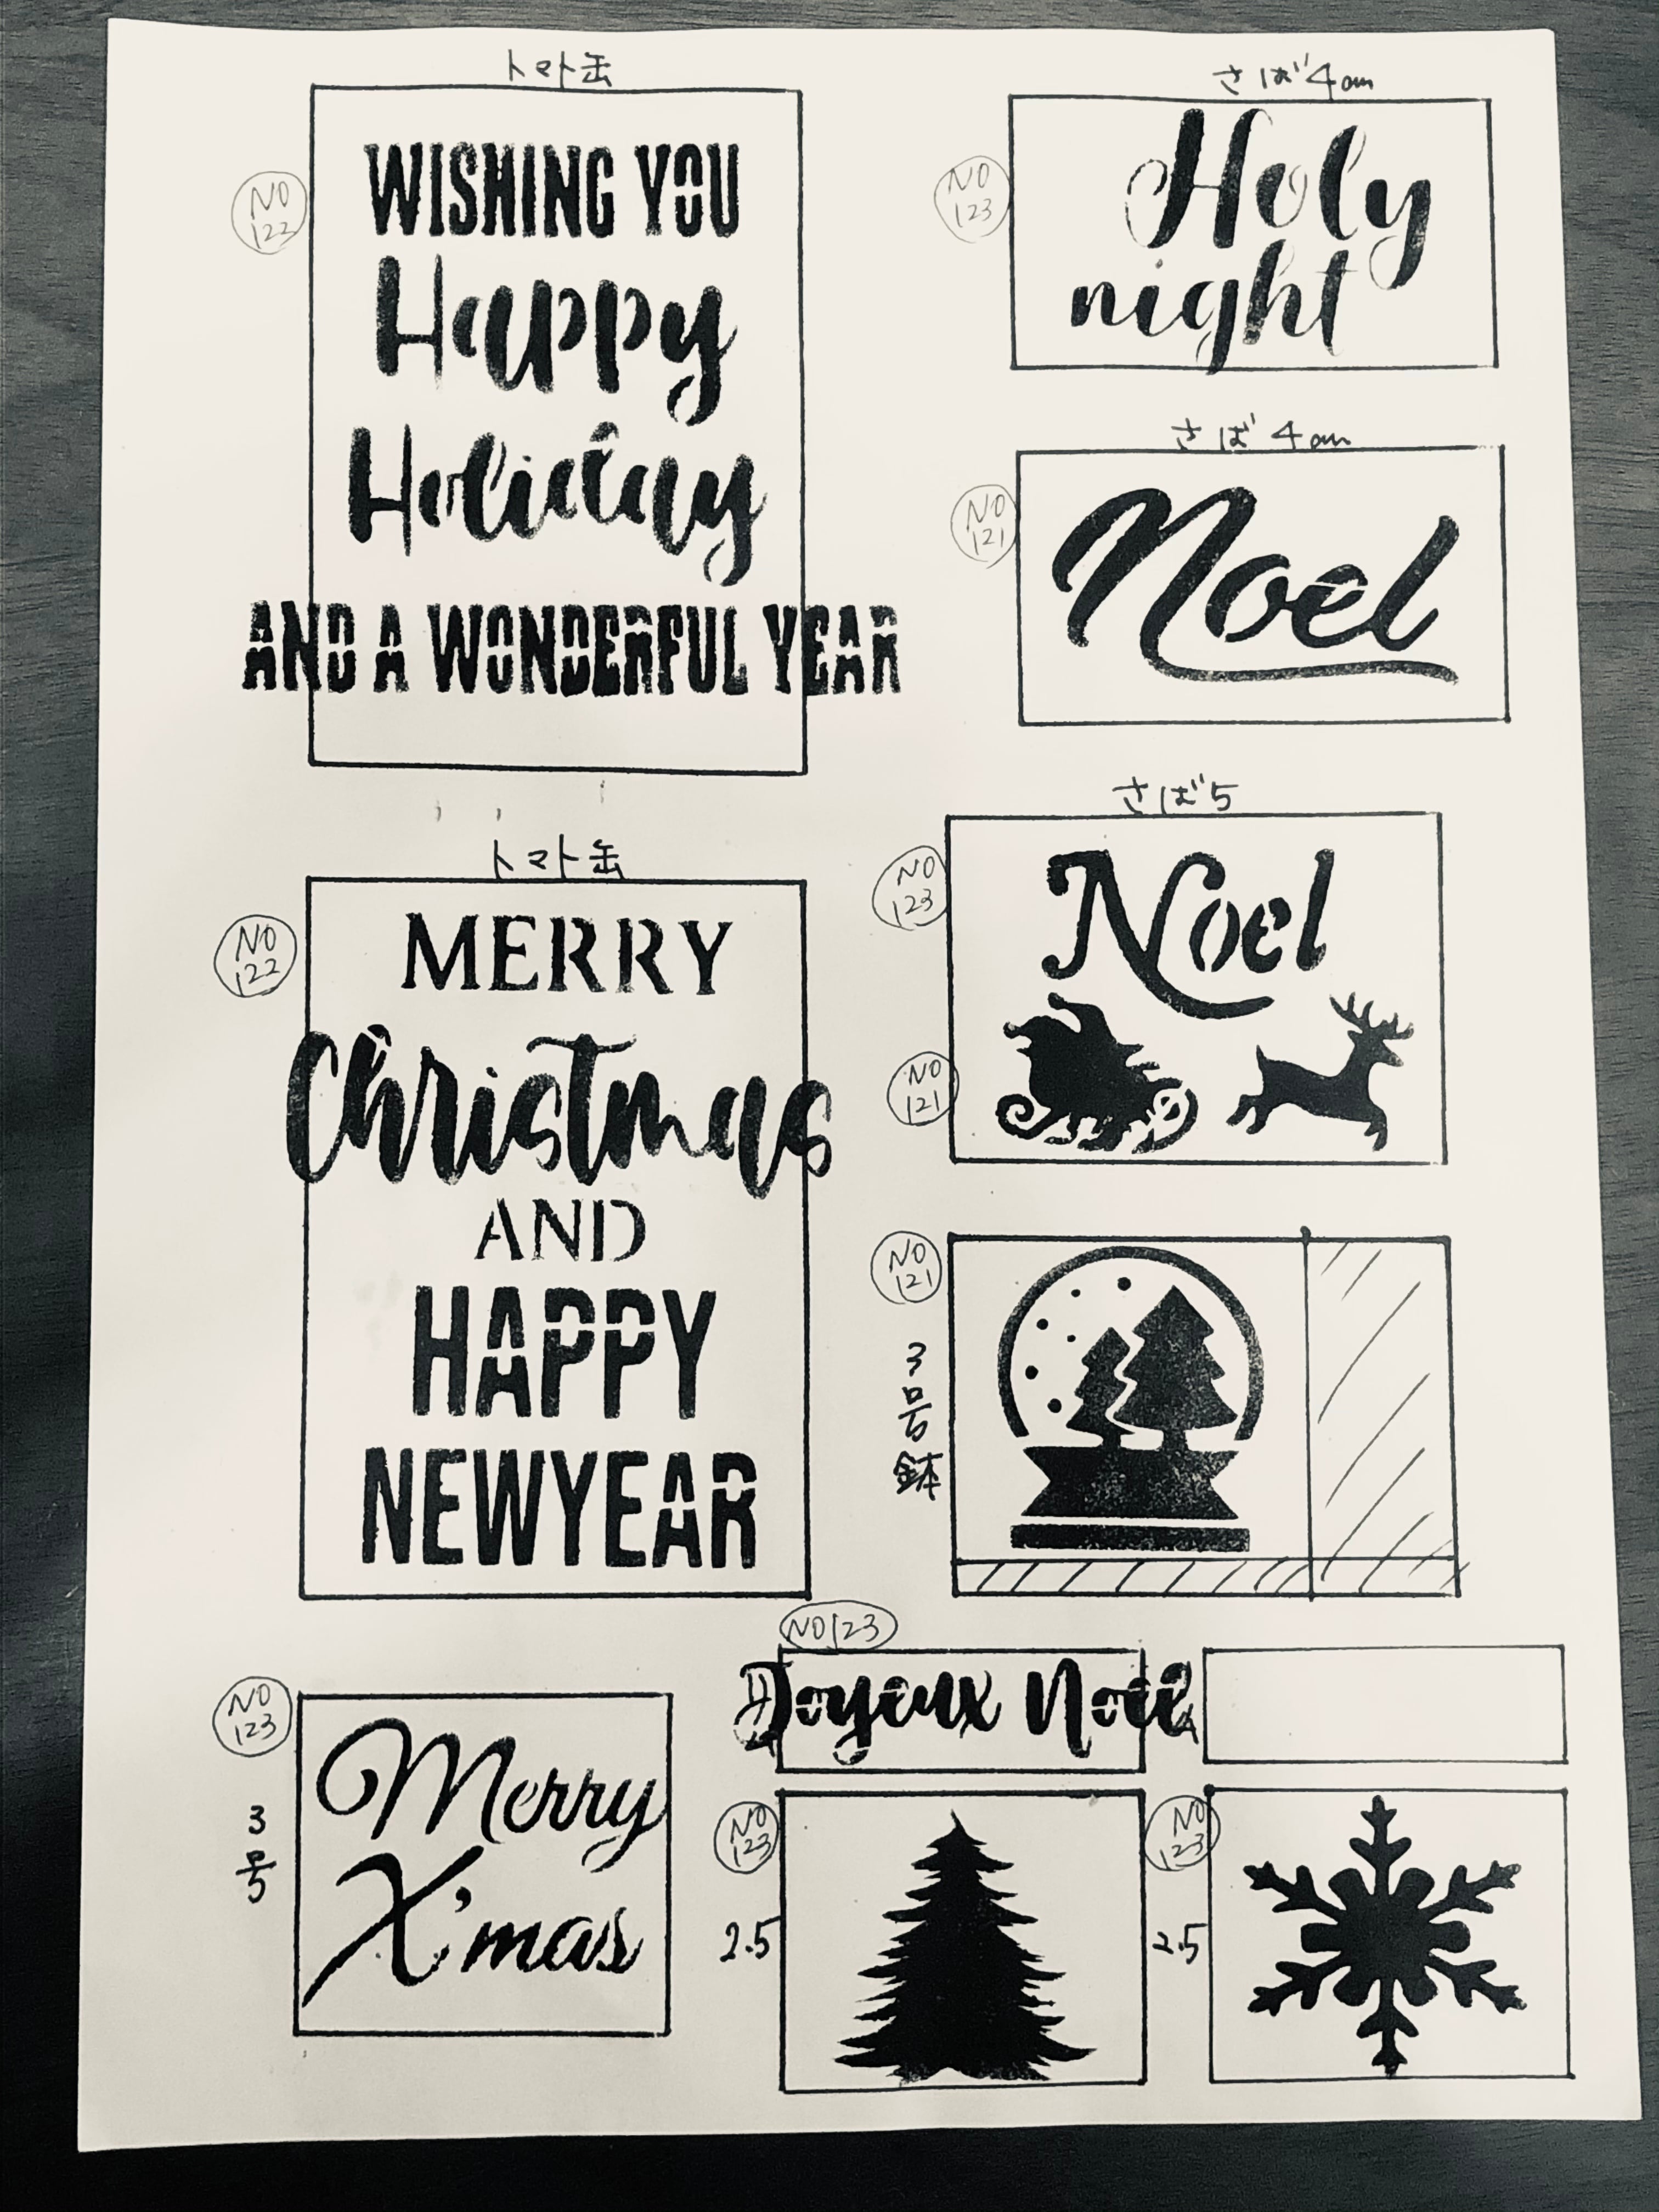 トマト缶
NO
122
WISHING YOU
Happy
Holiday
AND A WONDERFUL YEAR
トマト缶
NO
122
MERRY
Christmas
AND
HAPPY
NEWYEAR
NO
123
3号
Merry
X'mas
さば4cm
NO
123
Holy
night
さば4cm
NO
121
Noel
さば5
NO
123
Noel
NO
121
NO
121
3号鉢
NO123
Joyeux Noel
NO
123
2.5
NO
123
2.5